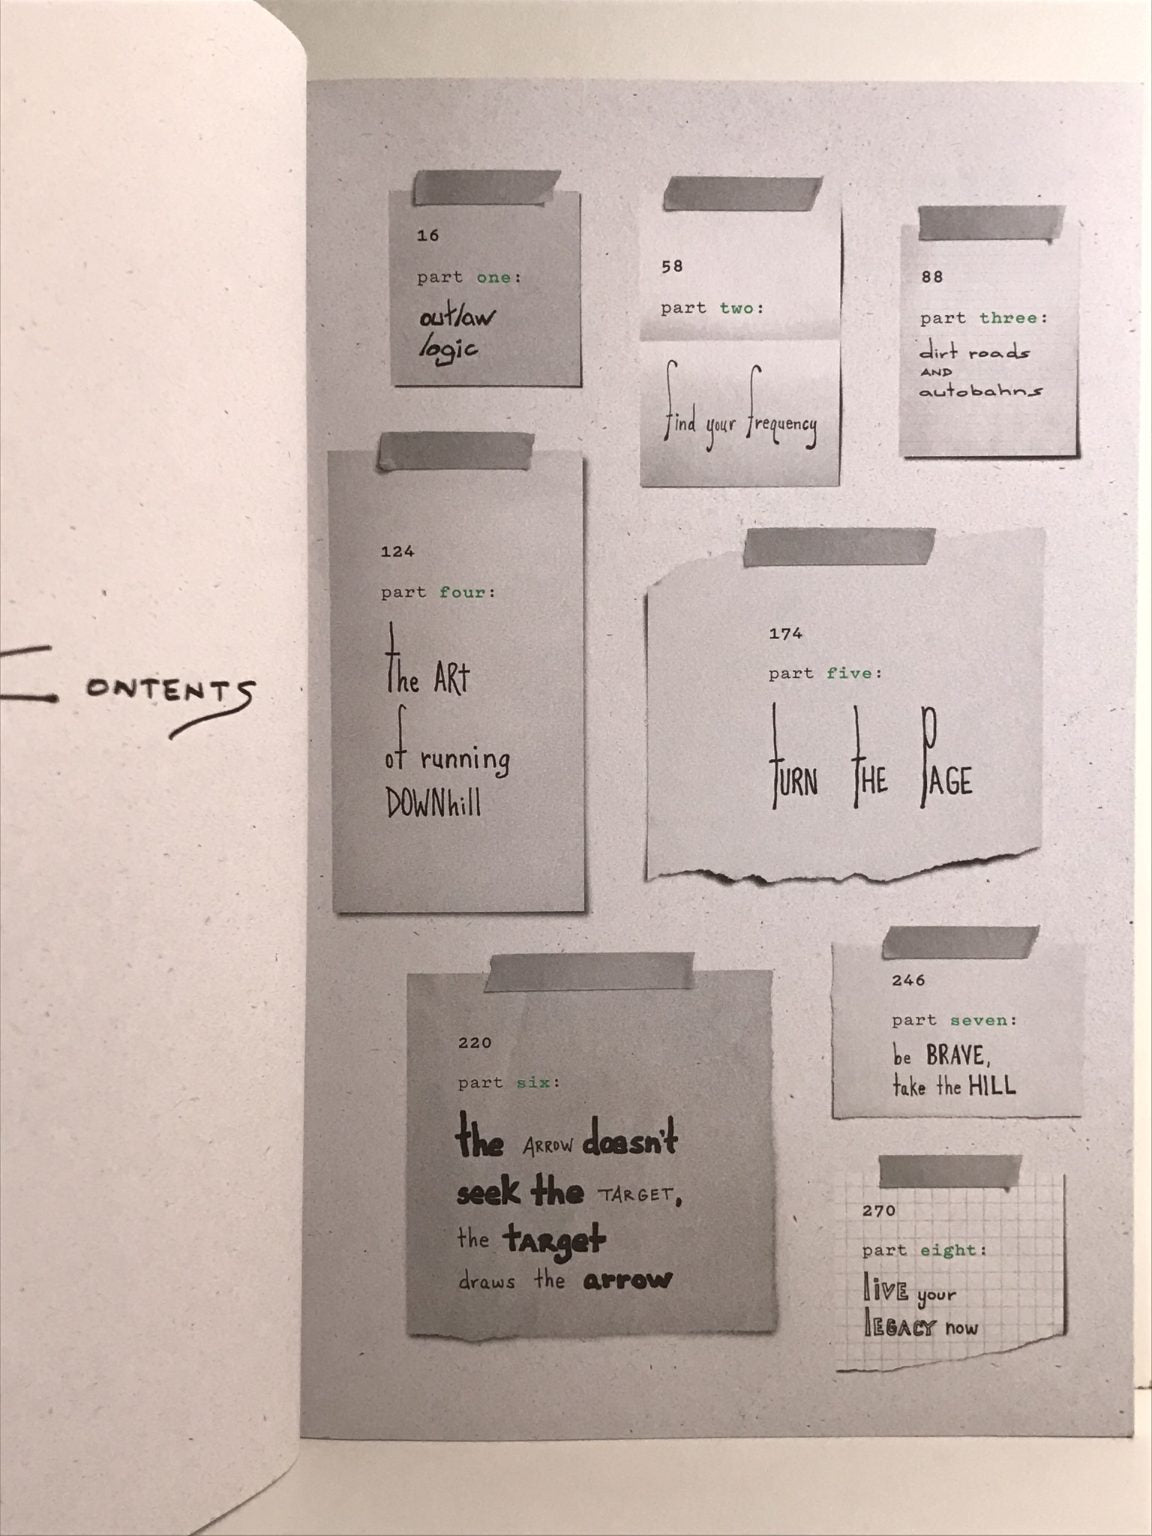 ONTENTS
16
part one:
outlaw
logic
58
part two:
find your frequency
88
part three:
dirt roads
AND
autobahns
124
part four:
the ARt
of running
DOWNhill
174
part five:
tURN tHE PAGE
220
part six:
the ARROW doesn't
seek the TARGET,
the tARget
draws the arrow
246
part seven:
be BRAVE,
take the HILL
270
part eight:
liVE your
lEGACY now